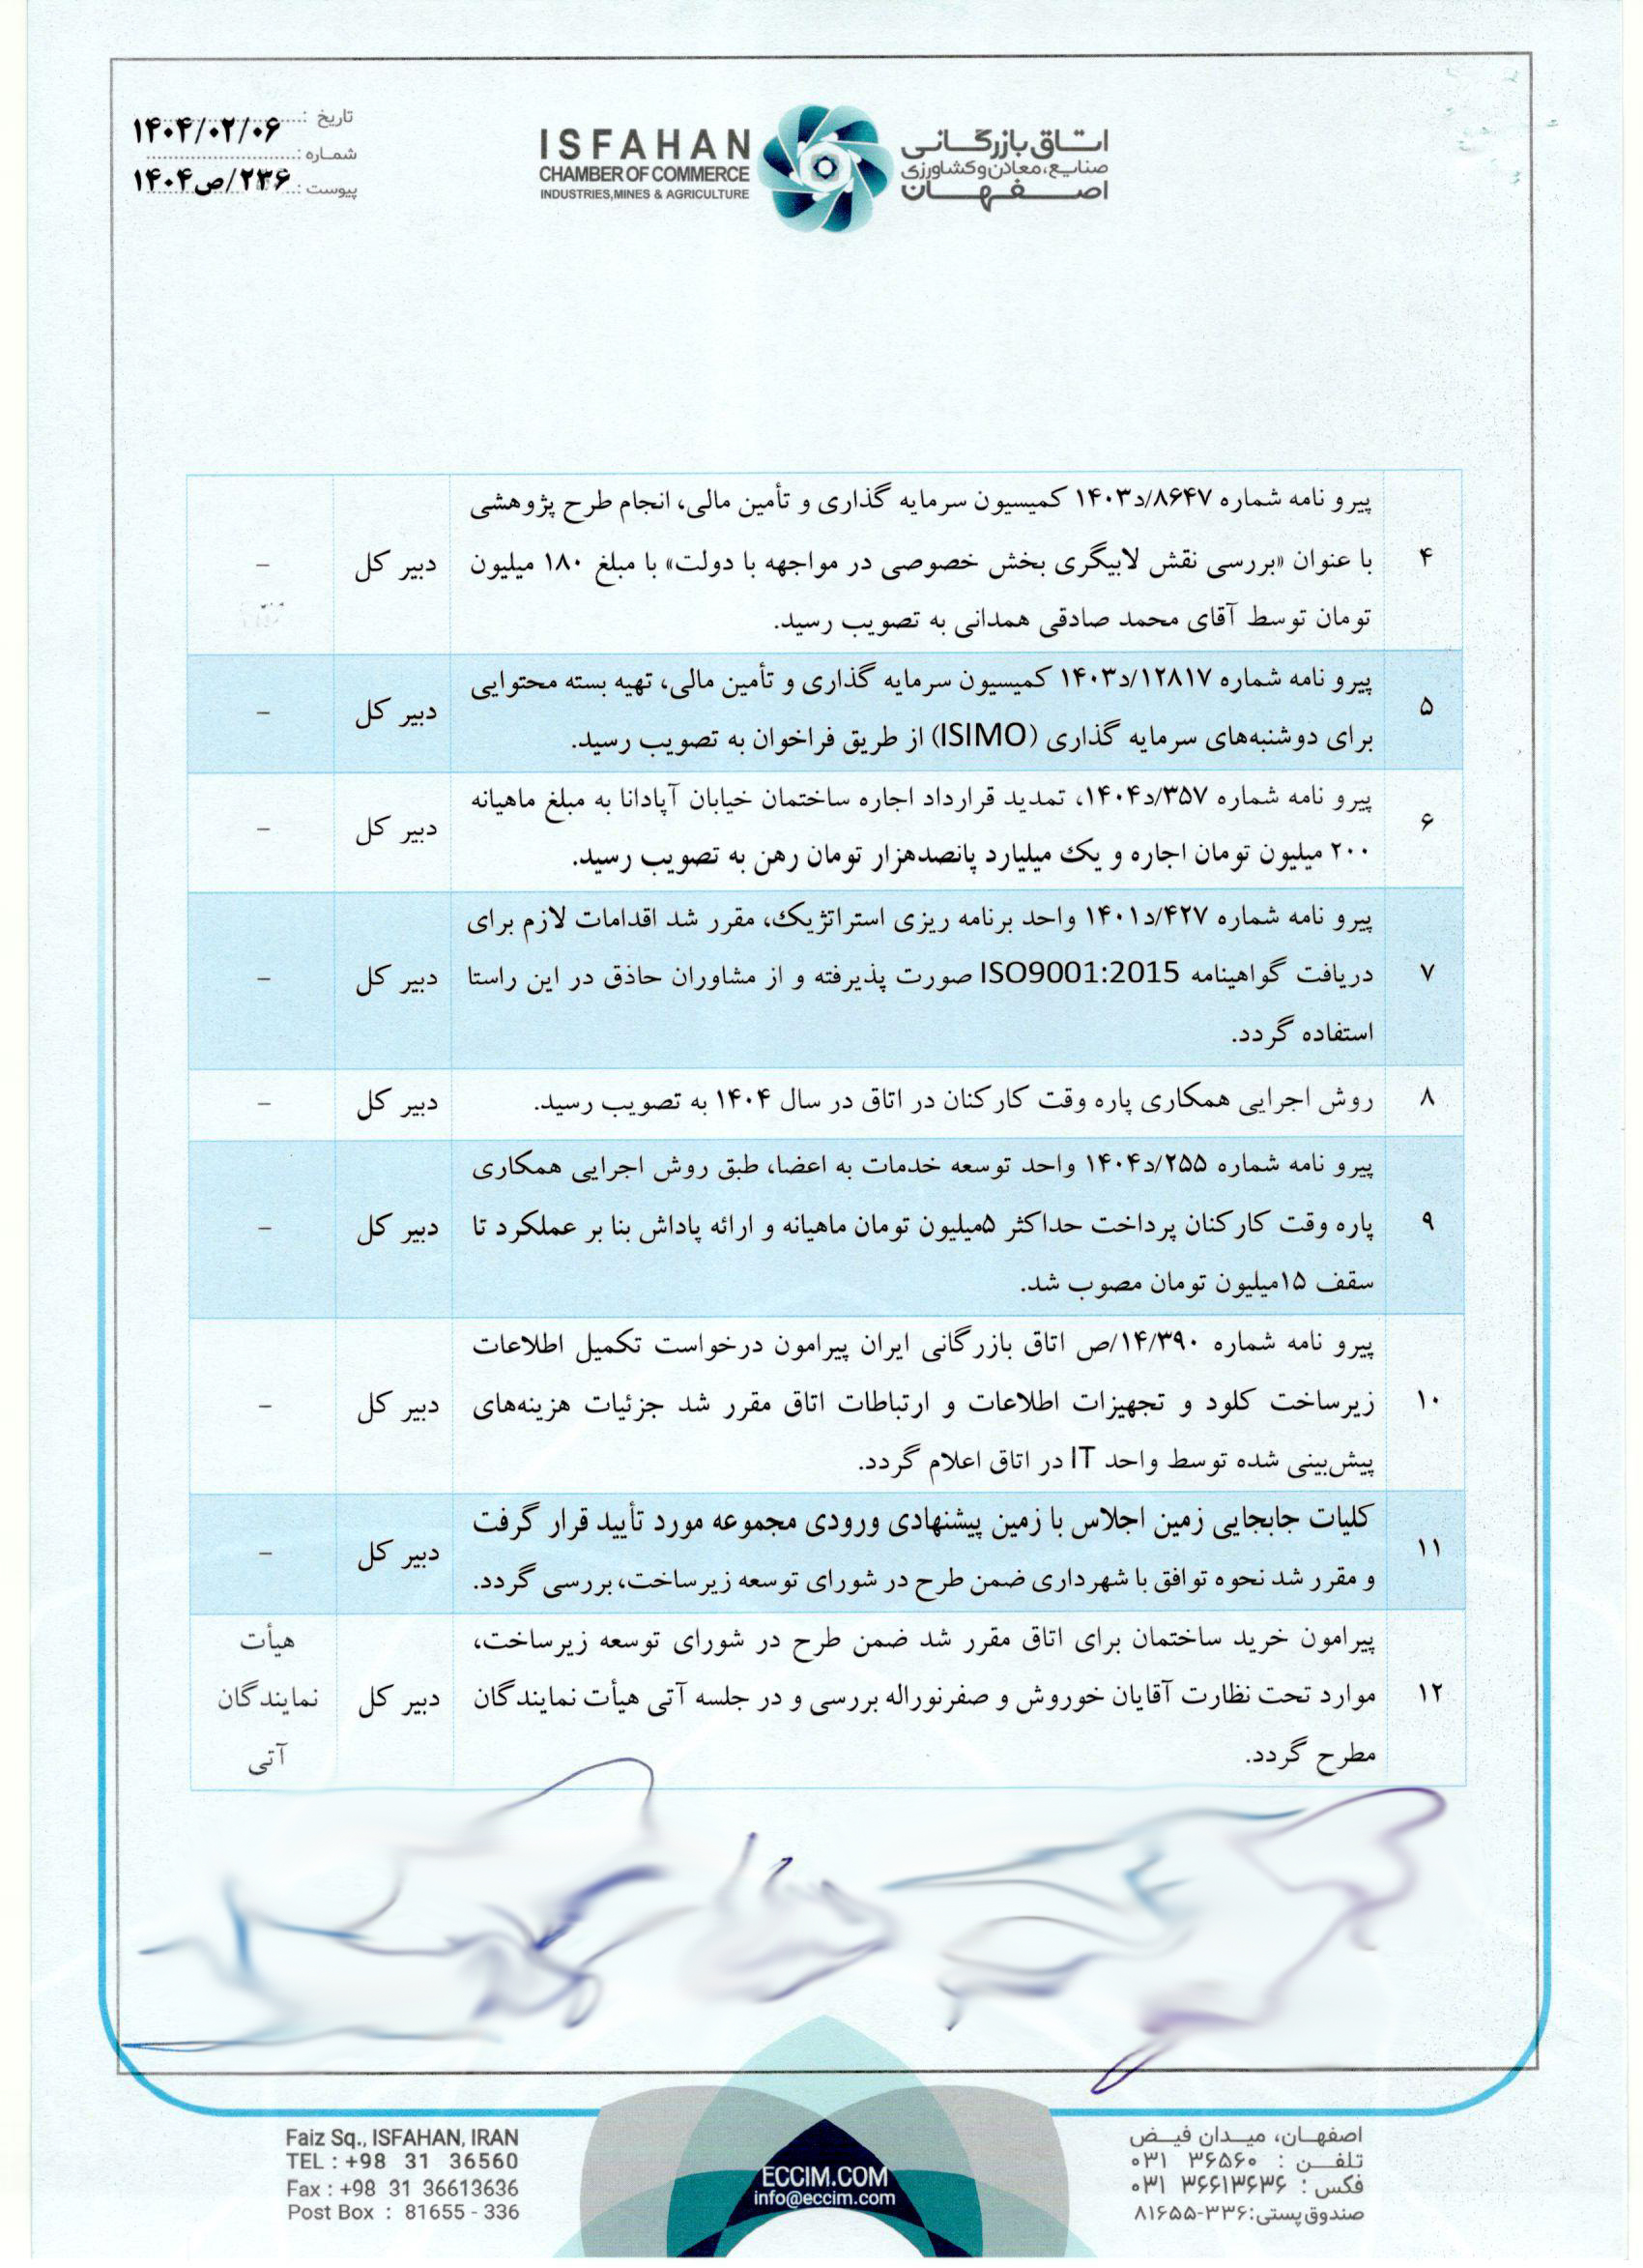 تاریخ :
۱۴۰۴/۰۲/۰۶
شماره :
پیوست :
۲۳۶/ص۱۴۰۴
ISFAHAN
CHAMBER OF COMMERCE
INDUSTRIES,MINES & AGRICULTURE
اتاق بازرگانی
صنایع، معادن و کشاورزی
اصفهان
۴
پیرو نامه شماره ۸۶۴۷/د۱۴۰۳ کمیسیون سرمایه گذاری و تأمین مالی، انجام طرح پژوهشی
با عنوان «بررسی نقش لابیگری بخش خصوصی در مواجهه با دولت» با مبلغ ۱۸۰ میلیون
تومان توسط آقای محمد صادقی همدانی به تصویب رسید.
دبیر کل
–
۵
پیرو نامه شماره ۱۲۸۱۷/د۱۴۰۳ کمیسیون سرمایه گذاری و تأمین مالی، تهیه بسته محتوایی
برای دوشنبه‌های سرمایه گذاری (ISIMO) از طریق فراخوان به تصویب رسید.
دبیر کل
–
۶
پیرو نامه شماره ۳۵۷/د۱۴۰۴، تمدید قرارداد اجاره ساختمان خیابان آپادانا به مبلغ ماهیانه
۲۰۰ میلیون تومان اجاره و یک میلیارد پانصدهزار تومان رهن به تصویب رسید.
دبیر کل
–
۷
پیرو نامه شماره ۴۲۷/د۱۴۰۱ واحد برنامه ریزی استراتژیک، مقرر شد اقدامات لازم برای
دریافت گواهینامه ISO9001:2015 صورت پذیرفته و از مشاوران حاذق در این راستا
استفاده گردد.
دبیر کل
–
۸
روش اجرایی همکاری پاره وقت کارکنان در اتاق در سال ۱۴۰۴ به تصویب رسید.
دبیر کل
–
۹
پیرو نامه شماره ۲۵۵/د۱۴۰۴ واحد توسعه خدمات به اعضا، طبق روش اجرایی همکاری
پاره وقت کارکنان پرداخت حداکثر ۵میلیون تومان ماهیانه و ارائه پاداش بنا بر عملکرد تا
سقف ۱۵میلیون تومان مصوب شد.
دبیر کل
–
۱۰
پیرو نامه شماره ۱۴/۳۹۰/ص اتاق بازرگانی ایران پیرامون درخواست تکمیل اطلاعات
زیرساخت کلود و تجهیزات اطلاعات و ارتباطات اتاق مقرر شد جزئیات هزینه‌های
پیش‌بینی شده توسط واحد IT در اتاق اعلام گردد.
دبیر کل
–
۱۱
کلیات جابجایی زمین اجلاس با زمین پیشنهادی ورودی مجموعه مورد تأیید قرار گرفت
و مقرر شد نحوه توافق با شهرداری ضمن طرح در شورای توسعه زیرساخت، بررسی گردد.
دبیر کل
–
۱۲
پیرامون خرید ساختمان برای اتاق مقرر شد ضمن طرح در شورای توسعه زیرساخت،
موارد تحت نظارت آقایان خوروش و صفرنوراله بررسی و در جلسه آتی هیأت نمایندگان
مطرح گردد.
دبیر کل
هیأت
نمایندگان
آتی
Faiz Sq., ISFAHAN, IRAN
TEL : +98 31 36560
Fax : +98 31 36613636
Post Box : 81655 - 336
ECCIM.COM
info@eccim.com
اصفهان، میدان فیض
تلفن : ۳۶۵۶۰ ۰۳۱
فکس : ۳۶۶۱۳۶۳۶ ۰۳۱
صندوق پستی: ۳۳۶-۸۱۶۵۵